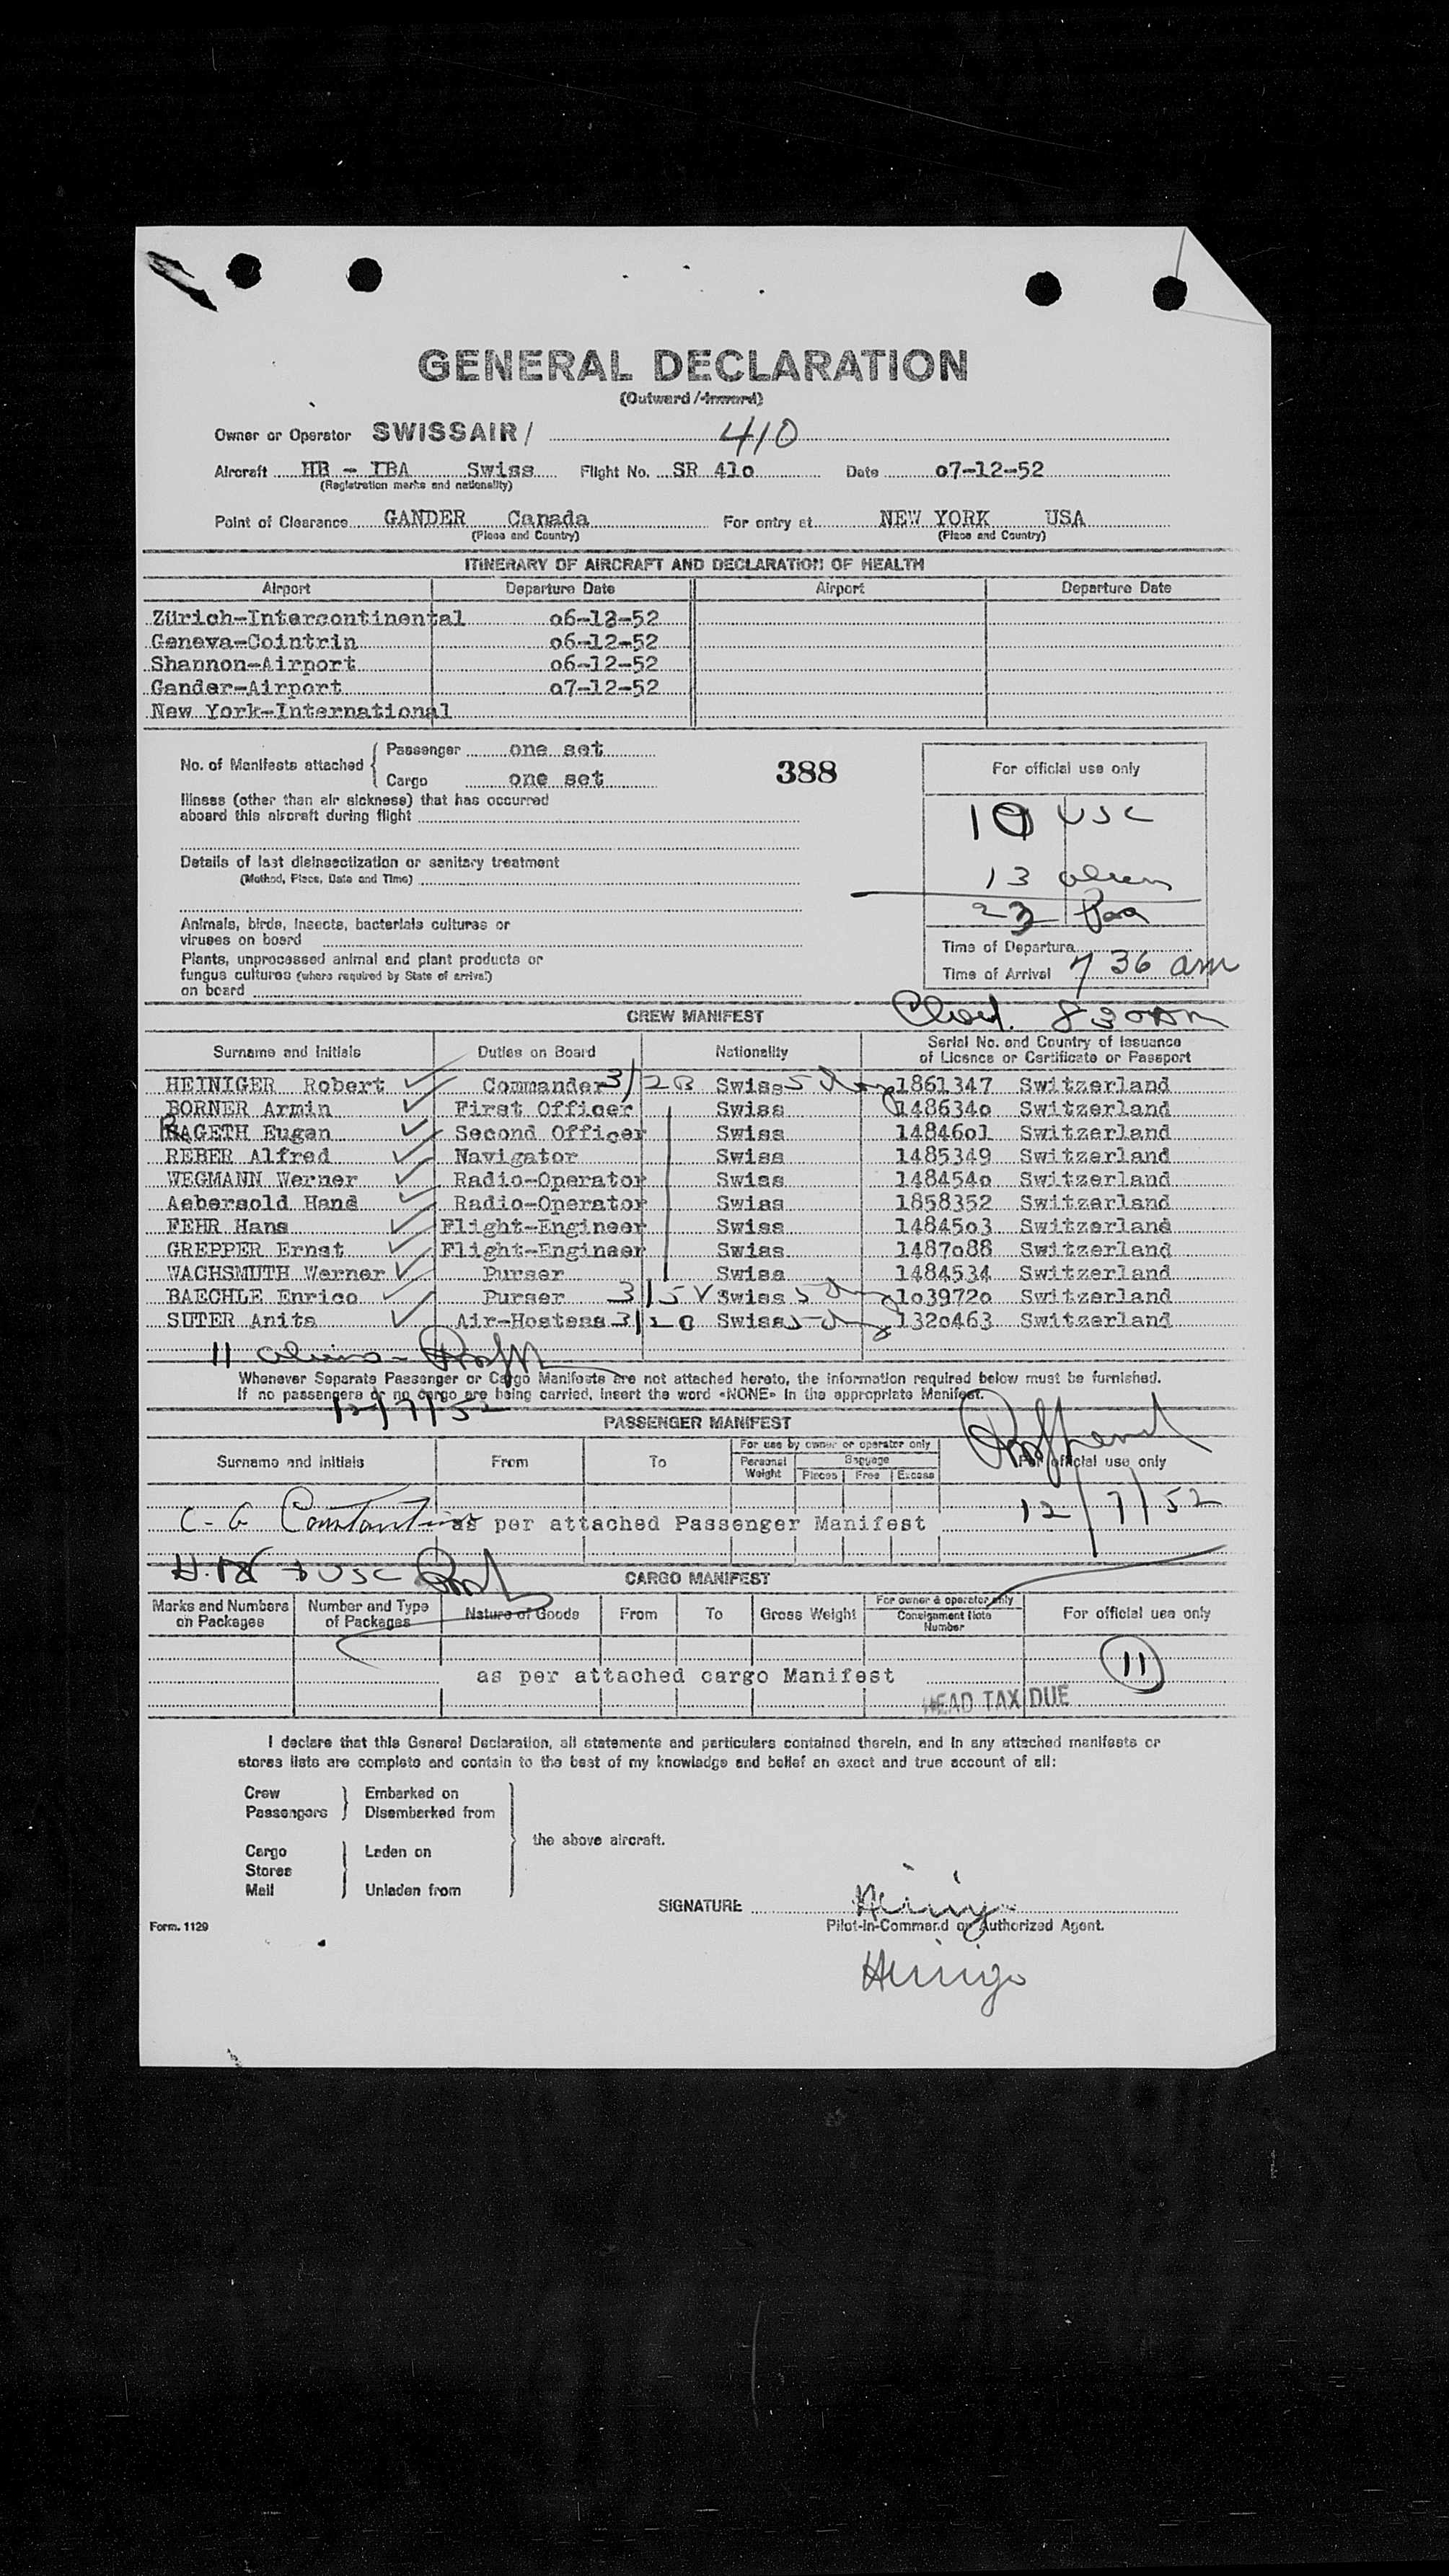 GENERAL DECLARATION
(Outward/Inward)
Owner or Operator SWISSAIR/ 410
Aircraft HB - IBA Swiss Flight No. SR 41o Date o7-12-52
(Registration marks and nationality)
Point of Clearance GANDER Canada For entry at NEW YORK USA
(Place and Country) (Place and Country)
ITINERARY OF AIRCRAFT AND DECLARATION OF HEALTH
Airport Departure Date Airport Departure Date
Zürich-Intercontinental o6-12-52
Geneva-Cointrin o6-12-52
Shannon-Airport o6-12-52
Gander-Airport o7-12-52
New York-International
No. of Manifests attached Passenger one set
Cargo one set
388
For official use only
10 USC
13 aliens
23 Pax
Illness (other than air sickness) that has occurred
aboard this aircraft during flight
Details of last disinsectization or sanitary treatment
(Method, Place, Date and Time)
Animals, birds, insects, bacterials cultures or
viruses on board
Plants, unprocessed animal and plant products or
fungus cultures (where required by State of arrival)
on board
Time of Departure
Time of Arrival 7 36 am
CREW MANIFEST 830 AM
Surname and Initials Duties on Board Nationality Serial No. and Country of Issuance
of Licence or Certificate or Passport
HEINIGER Robert Commander 3/2B Swiss 1861347 Switzerland
BORNER Armin First Officer Swiss 148634o Switzerland
RAGETH Eugen Second Officer Swiss 14846o1 Switzerland
REBER Alfred Navigator Swiss 1485349 Switzerland
WEGMANN Werner Radio-Operator Swiss 148454o Switzerland
Aebersold Hans Radio-Operator Swiss 1858352 Switzerland
FEHR Hans Flight-Engineer Swiss 14845o3 Switzerland
GREPPER Ernst Flight-Engineer Swiss 1487o88 Switzerland
WACHSMUTH Werner Purser Swiss 1484534 Switzerland
BAECHLE Enrico Purser 3/5V Swiss 1o3972o Switzerland
SUTER Anita Air-Hostess 3/2 Swiss 132o463 Switzerland
11 aliens -
Whenever Separate Passenger or Cargo Manifests are not attached hereto, the information required below must be furnished.
If no passengers or no cargo are being carried, insert the word «NONE» in the appropriate Manifest.
12/7/52
PASSENGER MANIFEST
Surname and Initials From To For use by owner or operator only For official use only
Personal Weight Baggage
Pieces Free Excess
12/7/52
C-G Constantine as per attached Passenger Manifest
USC
CARGO MANIFEST
Marks and Numbers on Packages Number and Type of Packages Nature of Goods From To Gross Weight For owner & operator only Consignment Note Number For official use only
11
as per attached cargo Manifest
HEAD TAX DUE
I declare that this General Declaration, all statements and particulars contained therein, and in any attached manifests or
stores lists are complete and contain to the best of my knowledge and belief an exact and true account of all:
Crew Embarked on
Passengers Disembarked from
the above aircraft.
Cargo Laden on
Stores
Mail Unladen from
SIGNATURE Heiniger
Form. 1129 Pilot-in-Command or Authorized Agent.
Heiniger